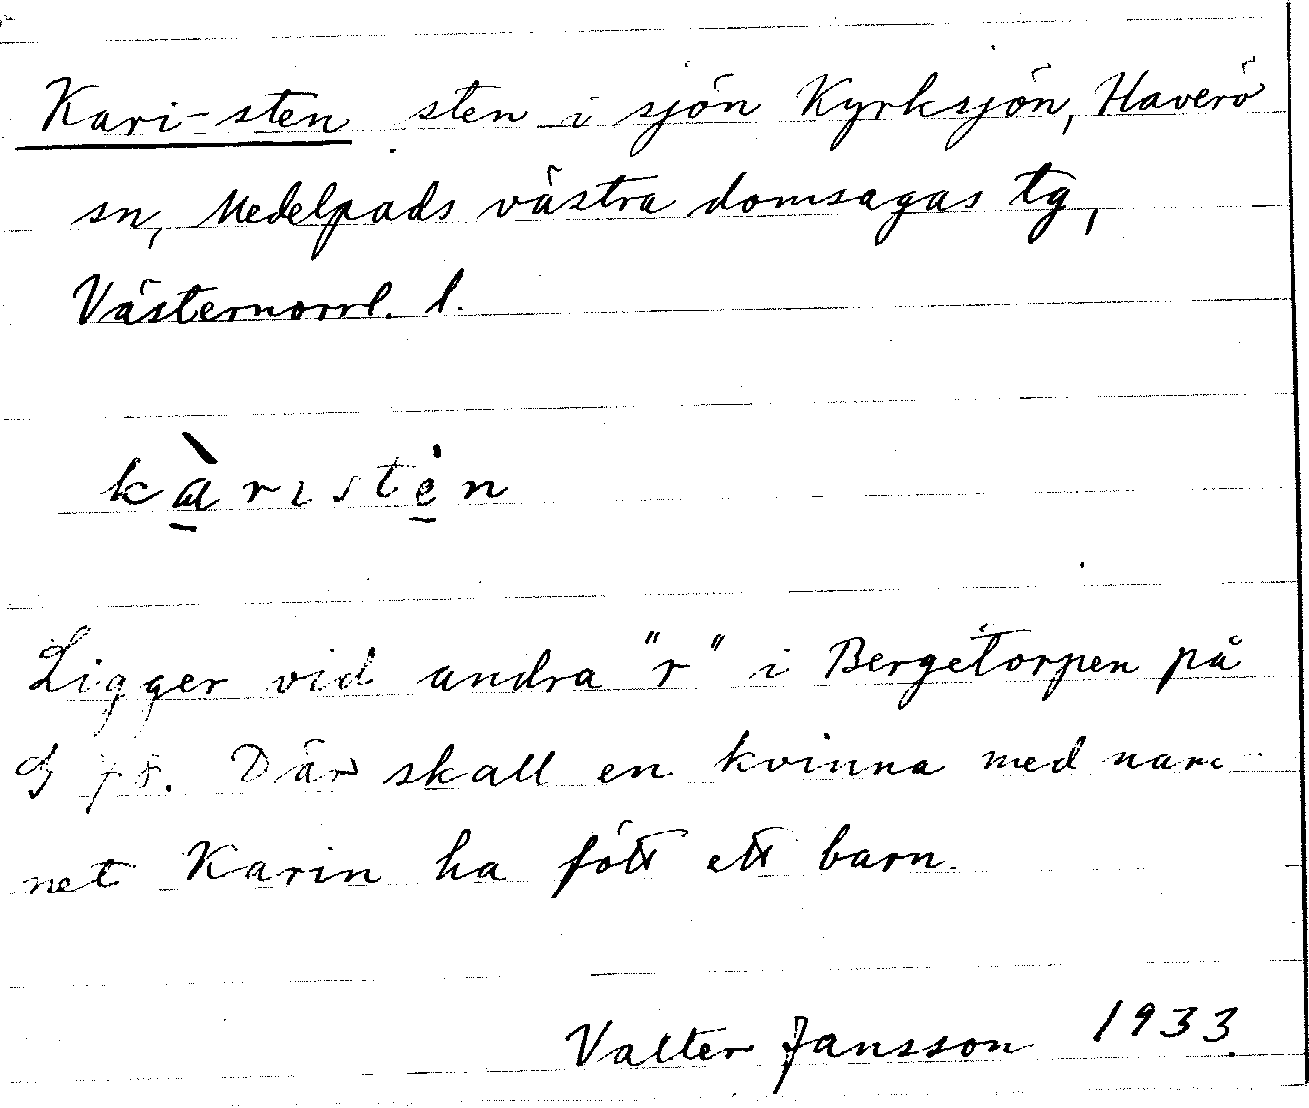 Kari-sten sten i sjön Kyrksjön, Haverö
sn, Medelpads västra domsagas tg,
Västernorrl. l.
kàristèn
Ligger vid andra "r" i Bergetorpen på
G 78. Där skall en kvinna med nam-
net Karin ha fött ett barn.
Valter Jansson 1933.